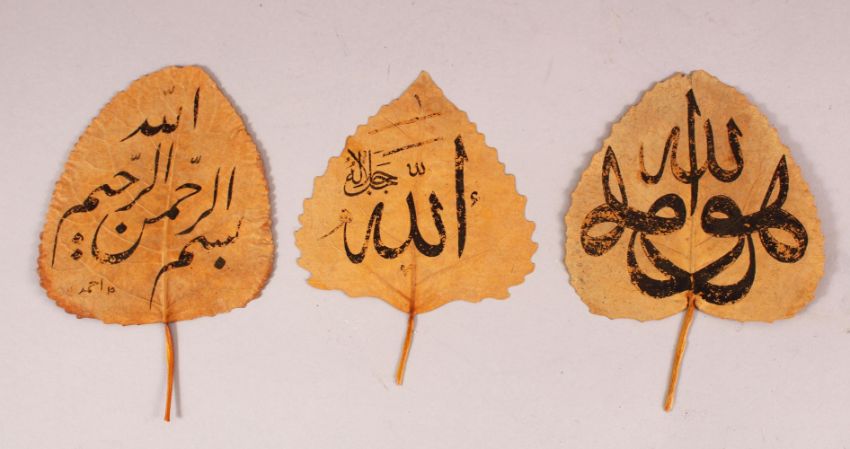 بسم الله الرحمن الرحيم
احمد
الله
جل جلاله
هو
الله